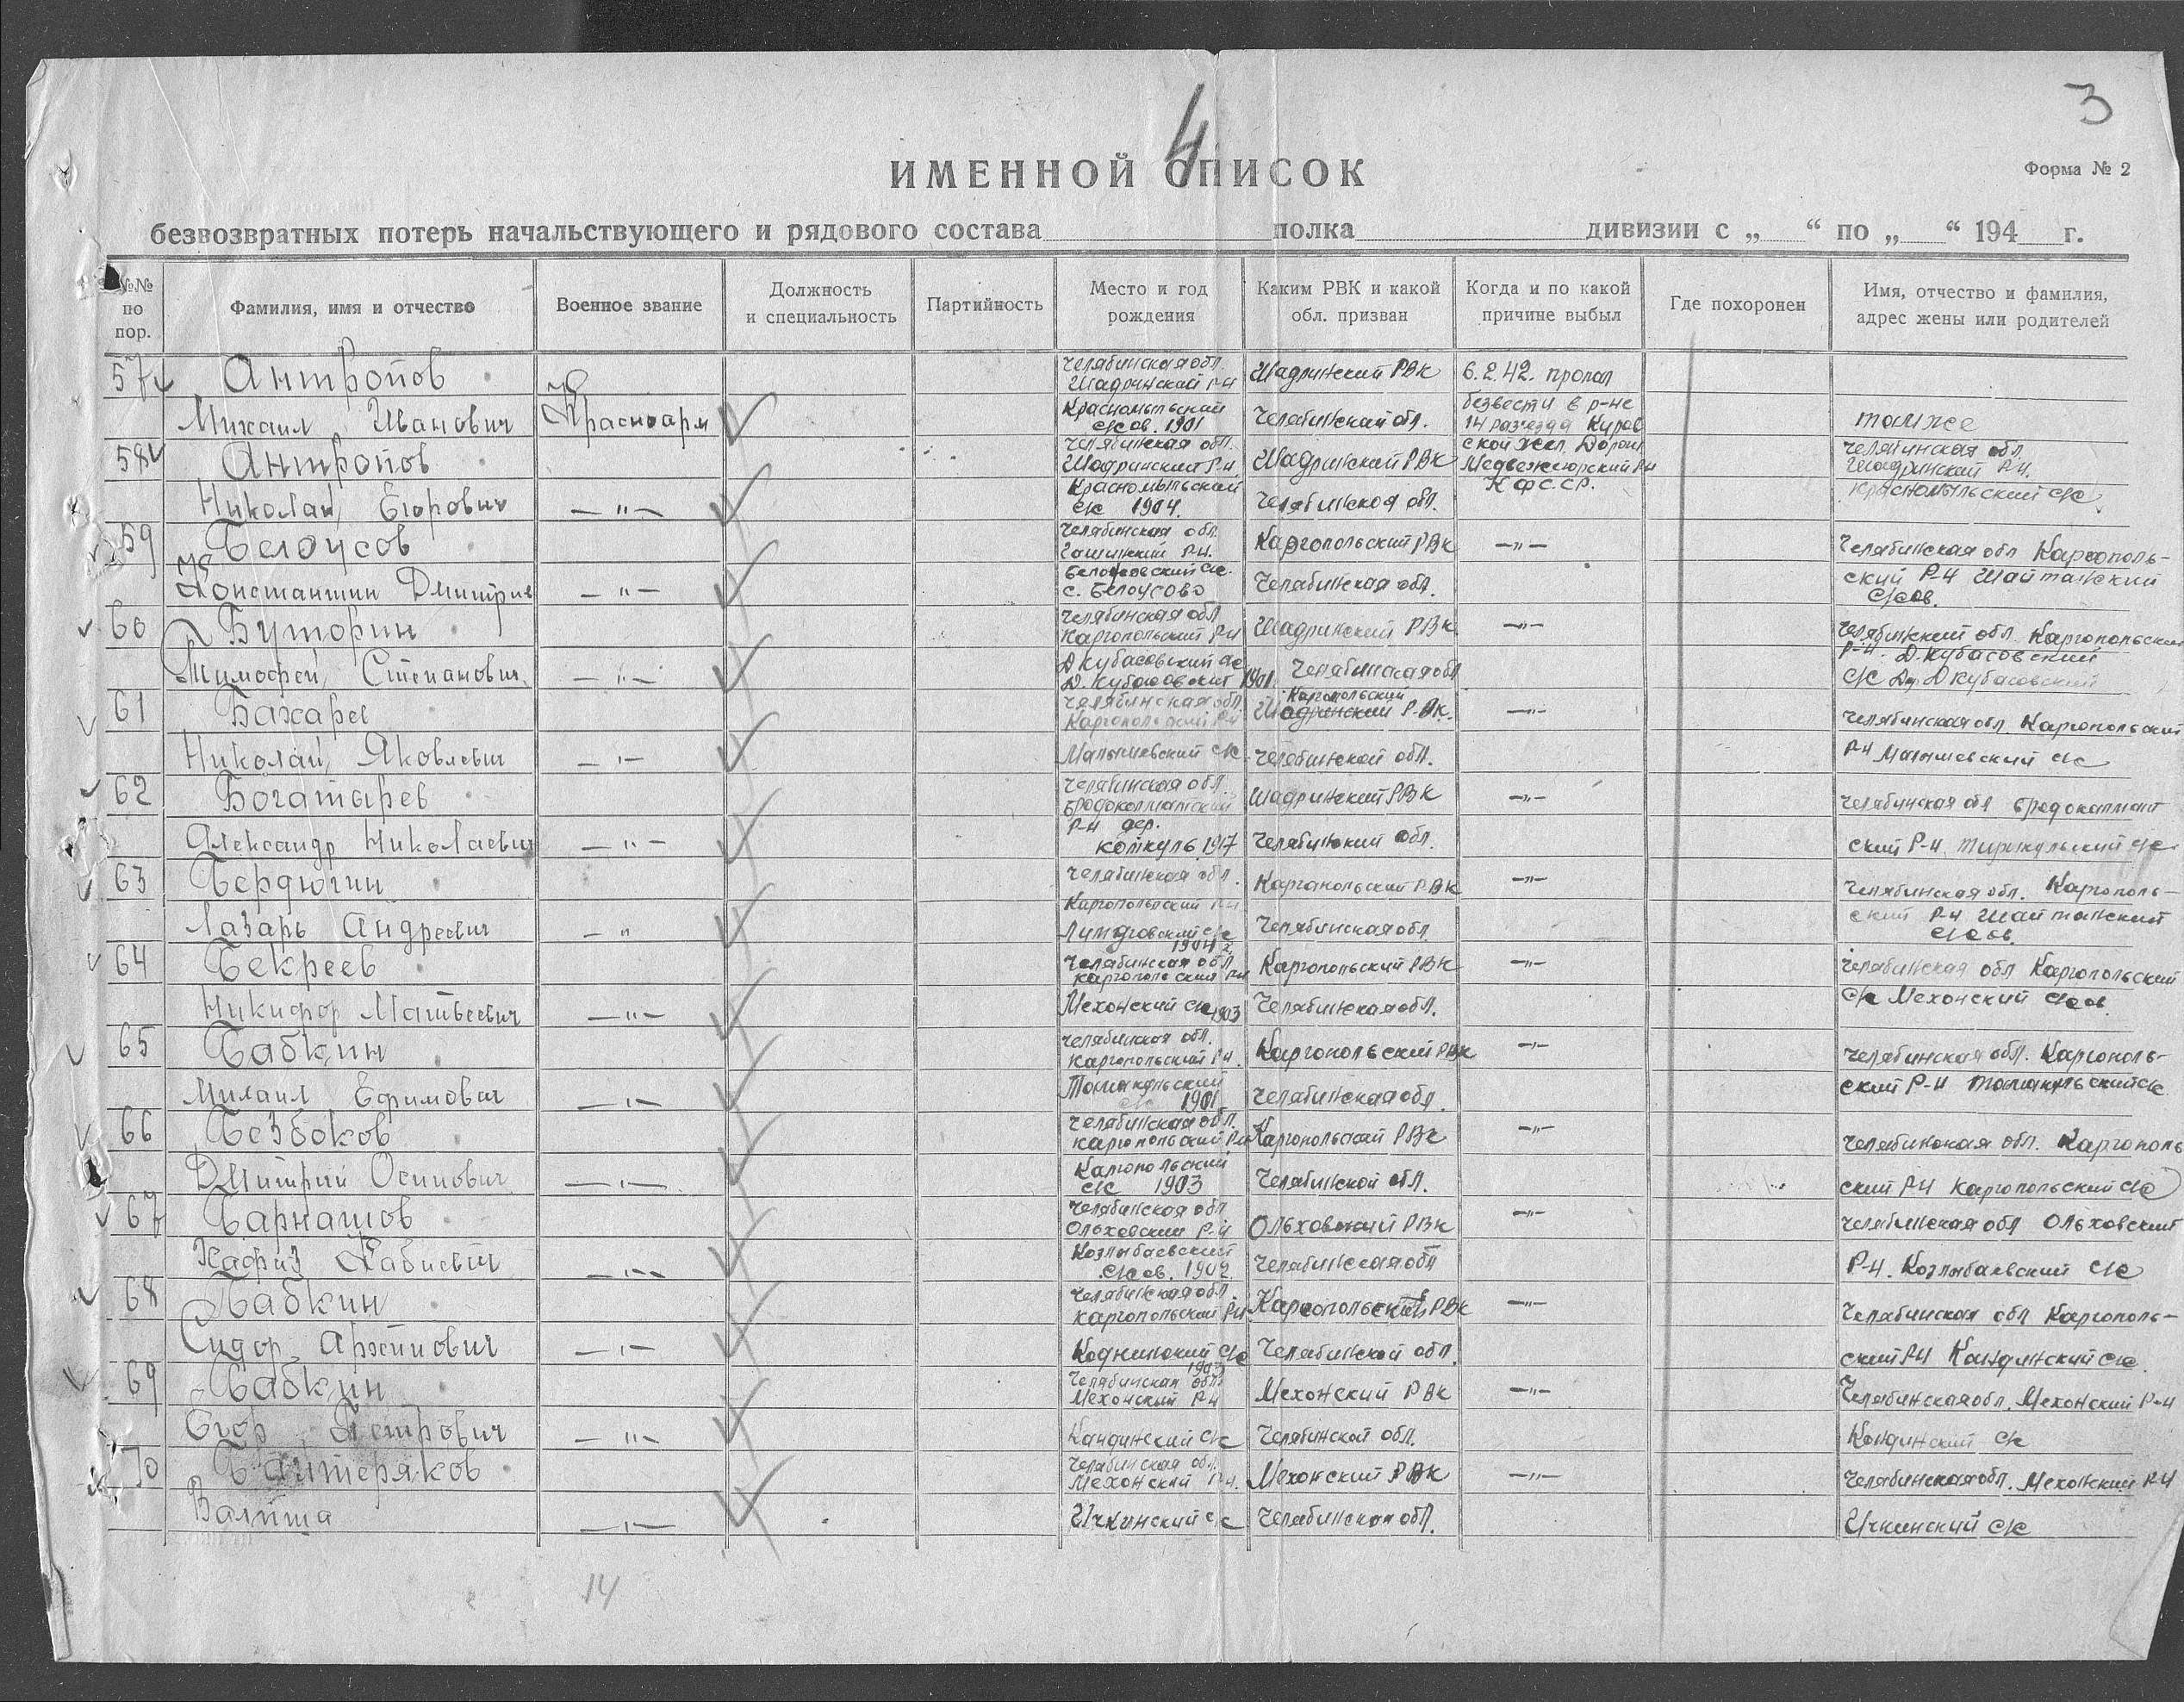 4
3
ИМЕННОЙ СПИСОК
Форма № 2
безвозвратных потерь начальствующего и рядового состава полка дивизии с „ “ по „ “ 194 г.
№№ по пор.
Фамилия, имя и отчество
Военное звание
Должность и специальность
Партийность
Место и год рождения
Каким РВК и какой обл. призван
Когда и по какой причине выбыл
Где похоронен
Имя, отчество и фамилия, адрес жены или родителей
57 Антропов Челябинская обл. Шадринский р-н Шадринский РВК 6.2.42. пропал
Михаил Иванович Красноарм Красномыльский с/сов. 1901 Челябинской обл. безвести в р-не 14 разъезда Киров там же
58 Антропов Челябинская обл. Шадринский р-н Шадринский РВК ской жел. Дороги Медвежегорский р-н Челябинская обл. Шадринский р-н.
Николай Егорович —"— Красномыльский с/с 1904. Челябинской обл. КФССР. Красномыльский с/с
59 Белоусов Челябинская обл. р-н. Каргопольский РВК —"— Челябинская обл Каргополь-
Константин Дмитрие —"— с/с. с. Белоусово Челябинская обл. ский р-н Шайтанский с/сов.
60 Буторин Челябинская обл Каргопольский р-н Шадринский РВК —"— Челябинский обл. Каргопольский
Тимофей Степанович —"— Д кубасовский с/с Д. Кубасовский 1901 Челябинская обл р-н. Д. кубасовский с/с Д. Д кубасовский
61 Бахарев Челябинская обл Каргопольский р-н Каргопольский Шадринский РВК. —"— Челябинская обл. Каргопольский
Николай Яковлевич —"— Малышевский с/с Челябинской обл. р-н Малышевский с/с
62 Богатырев Челябинская обл. Бродокалматский Шадринский РВК —"— Челябинская обл Бродокалмат
Александр Николаевич —"— р-н дер. 1917 Челябинский обл. ский р-н с/с
63 Бердюгин Челябинская обл. Каргопольский р-н Каргапольский РВК —"— Челябинская обл. Каргополь-
Лазарь Андреевич —" с/с 1904 Челябинская обл. ский р-н Шайтанский с/сов.
64 Бекреев Челябинская обл Каргопольский р-н Каргопольский РВК —"— Челябинская обл Каргопольский
Никифор Матвеевич —"— Мехонский с/с 1903 Челябинская обл. с/с Мехонский с/сов.
65 Бабкин Челябинская обл. Каргопольский р-н. Каргопольский РВК —"— Челябинская обл. Каргополь-
Михаил Ефимович —"— с/с 1901 Челябинская обл. ский р-н с/с
66 Безбоков Челябинская обл. Каргопольский р-н Каргопольский РВК —"— Челябинская обл. Каргополь
Дмитрий Осипович —"— Каргопольский с/с 1903 Челябинской обл. ский р-н Каргопольский с/с
67 Барнашов Челябинская обл Ольховский р-н Ольховский РВК —"— Челябинская обл Ольховский
Хафиз —"— Козлыбаевский с/сов. 1902. Челябинская обл р-н. Козлыбаевский с/с
68 Бабкин Челябинская обл Каргопольский р-н. Каргопольский РВК —"— Челябинская обл Каргополь-
Сидор —"— с/с 1903 Челябинской обл. ский р-н Кандинский с/с.
69 Бабкин Челябинская обл. Мехонский р-н Мехонский РВК —"— Челябинская обл. Мехонский р-н
Егор Петрович —"— Кандинский с/с Челябинской обл. Кондинский с/с
70 Байтеряков Челябинская обл. Мехонский р-н. Мехонский РВК —"— Челябинская обл. Мехонский р-н
Валиша —"— Ичкинский с/с Челябинская обл. Ичкинский с/с
14